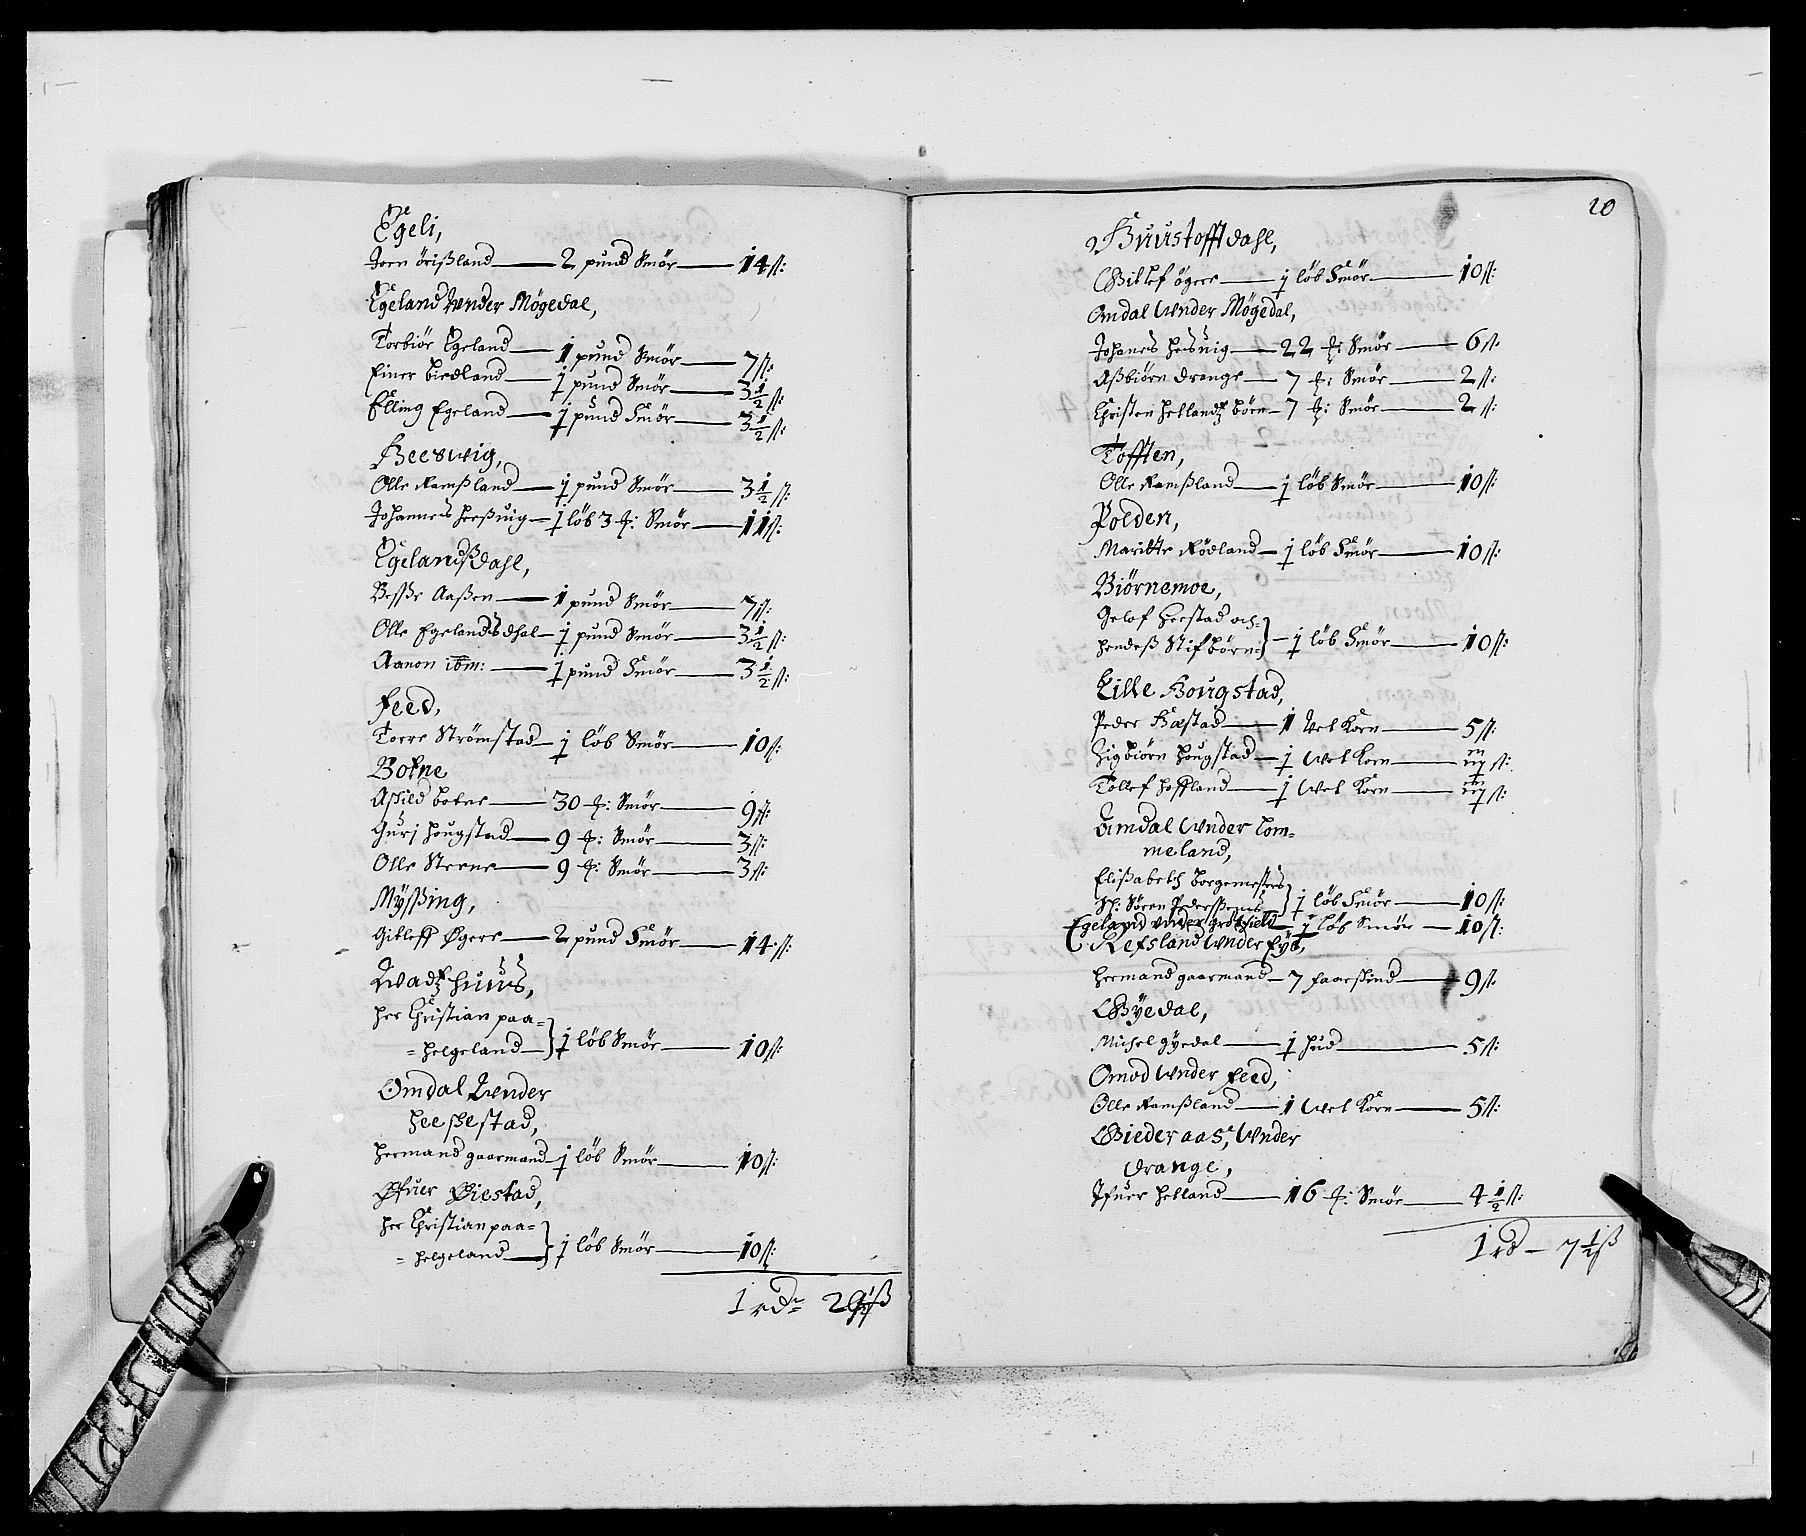 Egeli,
Jorn örißland — 2 pund Smör — 14 ß:
Egeland Wnder Mögedal,
Torbiör Egeland — 1 pund Smör — 7 ß:
Einer birdland — ½ pund Smör — 3½ ß:
Elling Egeland — ½ pund Smör — 3½ ß:
Heeswig,
Olle Ramßland — ½ pund Smör — 3½ ß:
Johannes heeßuig — 1 löb 3 ℔: Smör — 11 ß:
Egelandßdahl,
Beßße Aaßen — 1 pund Smör — 7 ß:
Olle Egelandsdhal — ½ pund Smör — 3½ ß:
Aanon ibm: — ½ pund Smör — 3½ ß:
Feed,
Torre Strömstad — 1 löb Smör — 10 ß:
Botne
Aßild botne — 30 ℔: Smör — 9 ß:
Guri hougstad — 9 ℔: Smör — 3 ß:
Olle Steene — 9 ℔: Smör — 3 ß:
Myßing,
Gitleff Øgere — 2 pund Smör — 14 ß:
Wadtz huus,
her Christian paa=
=helgeland — } 1 löb Smör — 10 ß:
Omdal Wnder
heeskestad,
hermand gaarmand — 1 löb Smör — 10 ß:
Øfuer Øiestad,
her Christian paa=
=helgeland — } 1 löb Smör — 10 ß:
1 rd:
20
Huustofftdahl,
Gitlef ögere — 1 löb Smör — 10 ß:
Omdal Wnder Mögedal,
Johanes hesuig — 22 ℔: Smör — 6 ß:
Aßbiörn drange — 7 ℔: Smör — 2 ß:
Christen hetlandtz börn — 7 ℔: Smör — 2 ß:
Tofften,
Olle Ramßland — 1 löb Smör — 10 ß:
Polden,
Maritte Rödland — 1 löb Smör — 10 ß:
Biörnemoe,
Gelof Heestad och=
hendeß Stifbörn= } — 1 löb Smör — 10 ß:
Lille Hougstad,
Peder Hæstad — 1 Vet Korn — 5 ß:
Sigbiörn hougstad — ½ Wet Korn — ß:
Tollef hoffland — ½ Wet Korn — ß:
Omdal Wnder Lom=
meland,
Elißabeth borgemesters
Sl: Sören Pederßens } 1 löb Smör — 10 ß:
Egeland vnder grötzield — 1 löb Smör — 10 ß:
Refsland Wnder Eye,
hermand gaarmand — 7 faarskind — 9 ß:
Gÿedal,
Michel gÿedal — 1 hud — 5 ß:
Omod Wnder Feed,
Olle Ramßland — 1 Wet Korn — 5 ß:
Giederaas, Wnder
drange,
Ifuer hetland — 16 ℔: Smör — 4½ ß:
1 rd — 7½ ß